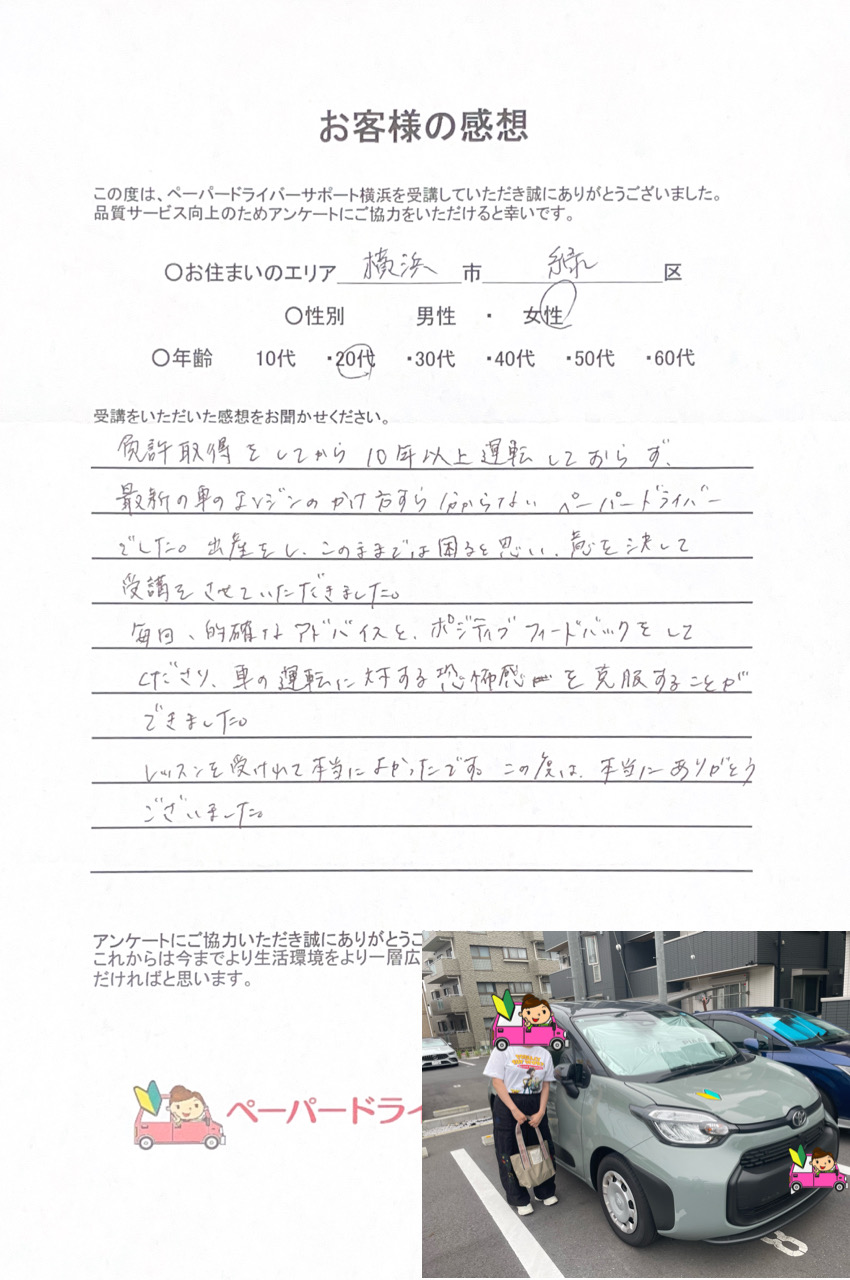 お客様の感想
この度は、ペーパードライバーサポート横浜を受講していただき誠にありがとうございました。
品質サービス向上のためアンケートにご協力をいただけると幸いです。
〇お住まいのエリア 横浜 市 緑 区
〇性別 男性 ・ 女性
〇年齢 10代 ・20代 ・30代 ・40代 ・50代 ・60代
受講をいただいた感想をお聞かせください。
免許取得をしてから10年以上運転しておらず、
最新の車のエンジンのかけ方すら分からない ペーパードライバー
でした。出産をし、このままでは困ると思い、意を決して
受講をさせていただきました。
毎回、的確なアドバイスと、ポジティブフィードバックをして
くださり、車の運転に対する恐怖感を克服することが
できました。
レッスンを受けれて本当によかったです。この度は、本当にありがとう
ございました。
アンケートにご協力いただき誠にありがとうご
これからは今までより生活環境をより一層広
だければと思います。
ペーパードライ
8